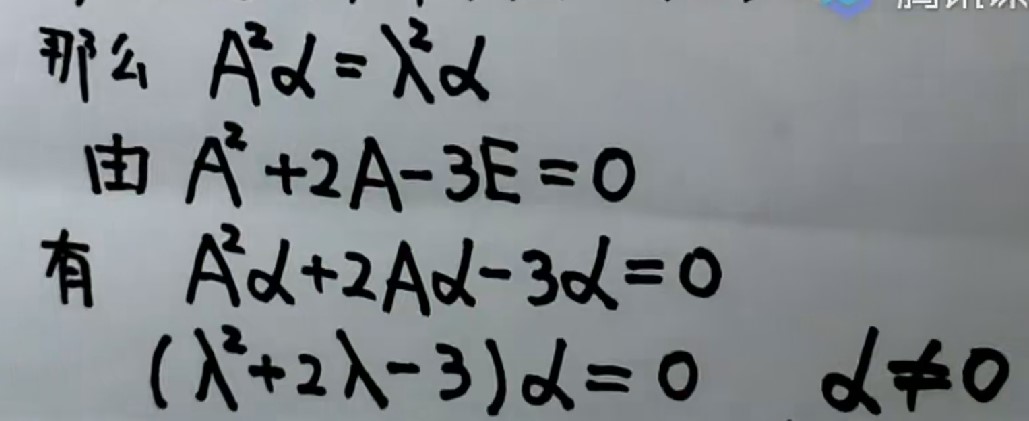 那么 A²α=λ²α
由 A²+2A-3E=0
有 A²α+2Aα-3α=0
(λ²+2λ-3)α=0 α≠0